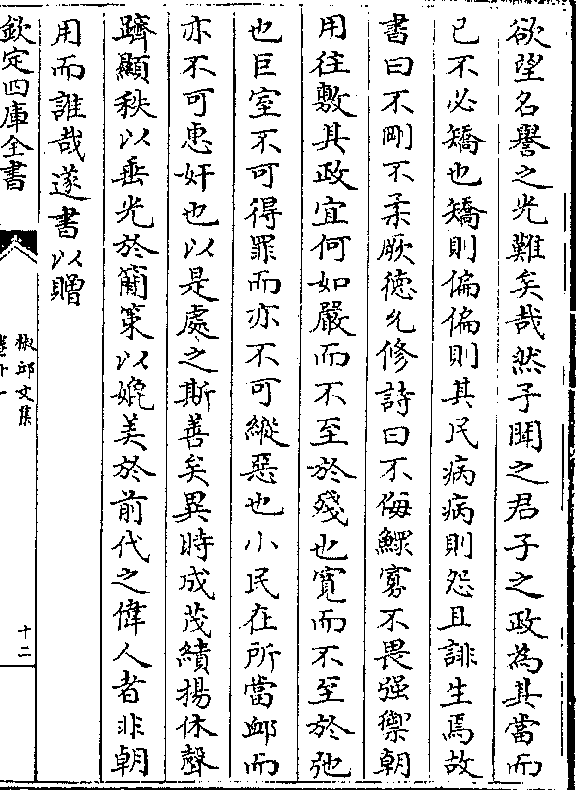 欲望名譽之光難矣哉然予聞之君子之政為其當而
已不必矯也矯則偏偏則其民病病則怨且誹生焉故
書曰不剛不柔厥德允修詩曰不侮鰥寡不畏强禦朝
用往敷其政宜何如嚴而不至於殘也寛而不至於弛
也巨室不可得罪而亦不可縱惡也小民在所當卹而
亦不可惠奸也以是處之斯善矣異時成茂績揚休聲
躋顯秩以垂光於簡策以媲美於前代之偉人者非朝
用而誰哉遂書以贈
欽定四庫全書
椒邱文集
十二